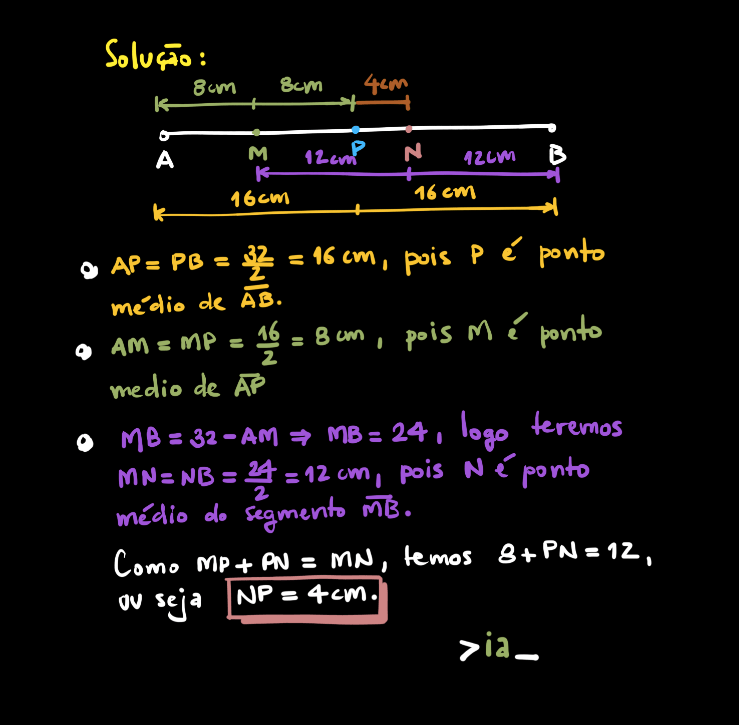 Solução:
8cm 8cm 4cm
A M P N B
12cm 12cm
16cm 16cm
AP = PB = 32/2 = 16 cm, pois P é ponto
médio de A̅B̅.
AM = MP = 16/2 = 8 cm, pois M é ponto
medio de A̅P̅
MB = 32 - AM ⇒ MB = 24, logo teremos
MN = NB = 24/2 = 12 cm, pois N é ponto
médio do segmento M̅B̅.
Como MP + PN = MN, temos 8 + PN = 12,
ou seja NP = 4cm.
>ia_